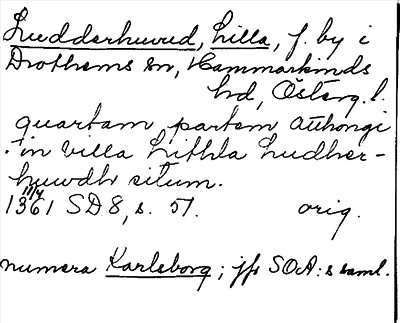 Ludderhuvud, Lilla, f. by i
Drothems sn, Hammarkinds
hd, Österg. l.
quartam partem atthongi
in villa Lithla Ludher-
huwdh situm.
1361 SD 8, s. 51. orig.
numera Karlsborg; jfr SOA:s saml.